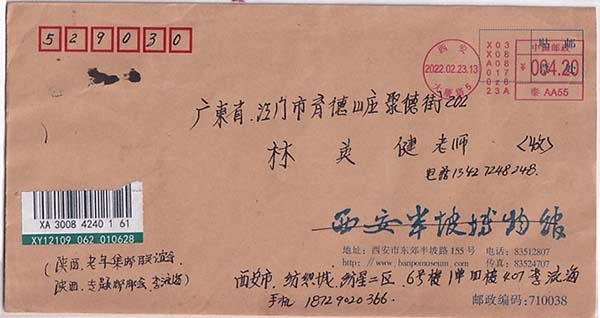 529030
西安
2022.02.23.13
大唐西5
X03
X08
A08
017
0z6
23A
中国邮政
贴邮
票处
¥004.20
秦 AA55
广東省.江门市育德山庄聚德街202
林英健老师〈收〉
电话13427248248.
XA 3008 4240 1 61
XY12109 062 010628
西安半坡博物館
地址:西安市东郊半坡路155号 电话:83512807
http://www.banpomuseum.com 传真:83524707
(陕西.老年集邮联谊会
陕西.专题邮邮会.李流海)
西安市.纺织城.纺星二区.6号楼1单四楼407李流海
手机18729020366.
邮政编码:710038